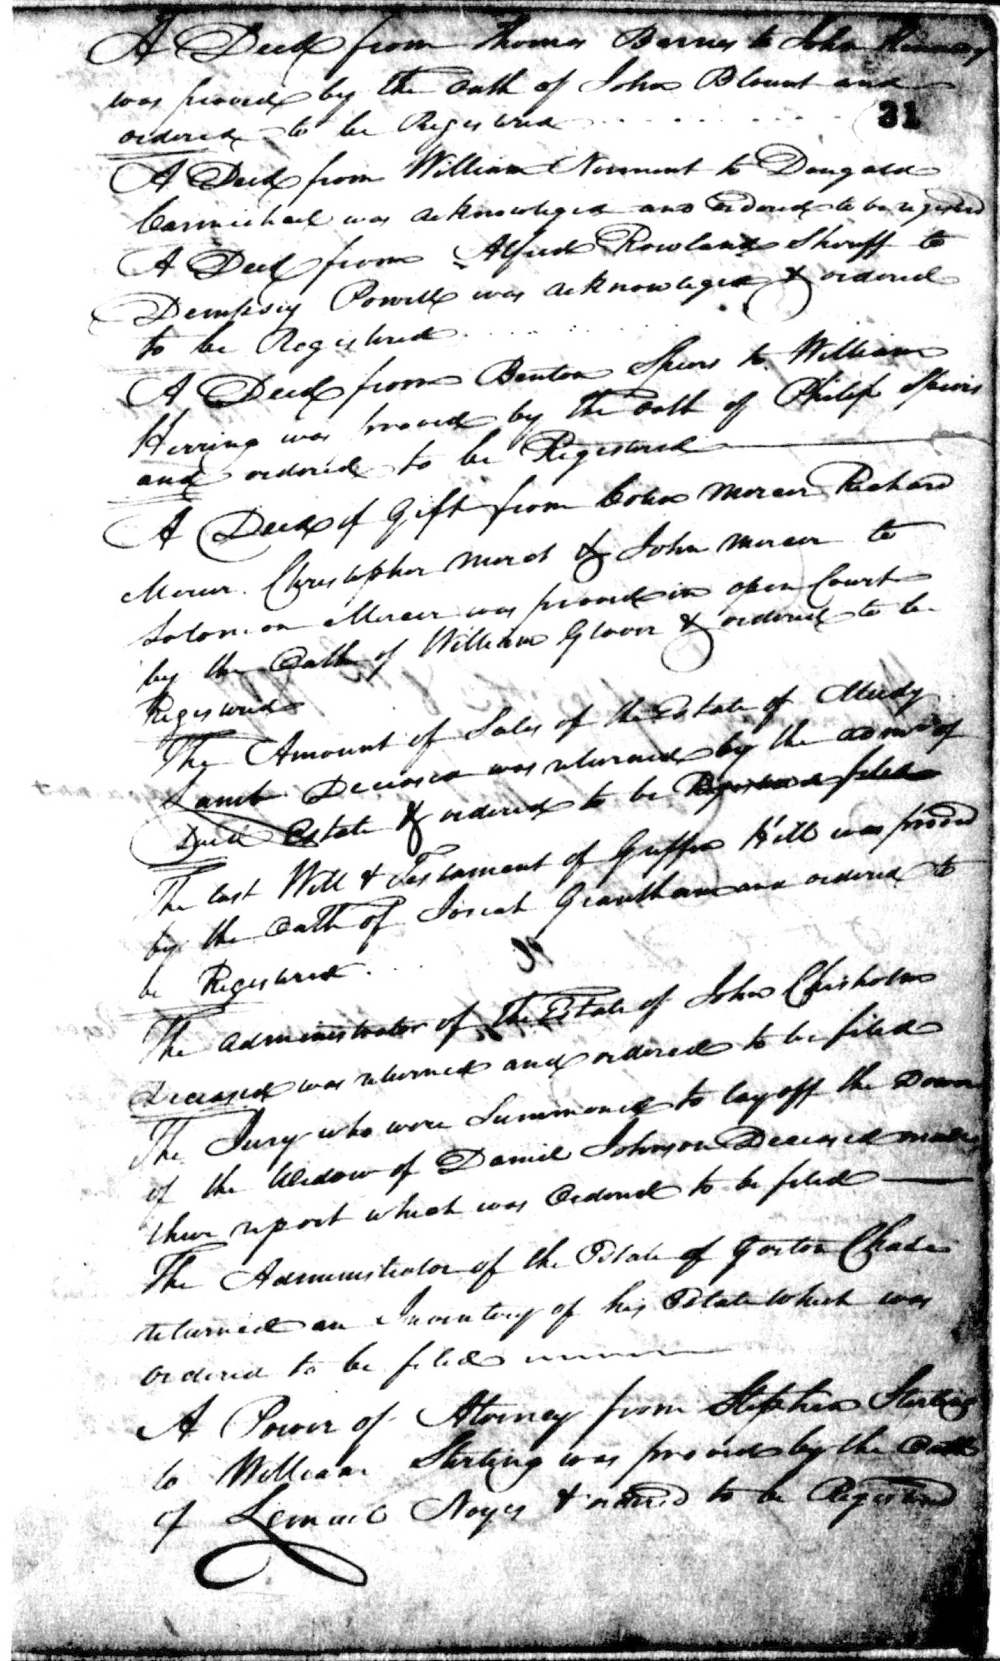 A Deed from Thomas Barnes to John
was proved by the Oath of John Blount and
31
ordered to be Registered
A Deed from William Norment to Dougald
Carmichael was acknowleged and ordered to be registered
A Deed from Alfred Rowland Sheriff to
Dempsey Powell was acknowleged & ordered
to be Registered
A Deed from Benton Spivs to William
Herring was proved by the oath of Philip Spivis
and ordered to be Registered
A Deed of Gift from Coten Mercer Richard
Mercer Christopher Mercer & John Mercer to
Solomon Mercer was proved in open Court
by the Oath of William Glover & ordered to be
Registered
The Amount of Sales of the Estate of Meedy
Lamb Deceased was returned by the admr of
Estate & ordered to be Registered filed
The last Will & Testament of Griffin Hill was proved
by the Oath of Josiah Grantham and ordered to
be Registered
The administrator of the Estate of John Chisholm
Deceased was returned and ordered to be filed
The Jury who were Summoned to lay off the Dower
of the Widow of Daniel Johnson Deceased made
their report which was Ordered to be filed
The Administrator of the Estate of Gorton Chase
returned an Inventory of his Estate which was
ordered to be filed
A Power of Attorney from Stephen Starling
to William Sterling was proved by the Oath
of Lemuel Noyes & ordered to be Registered